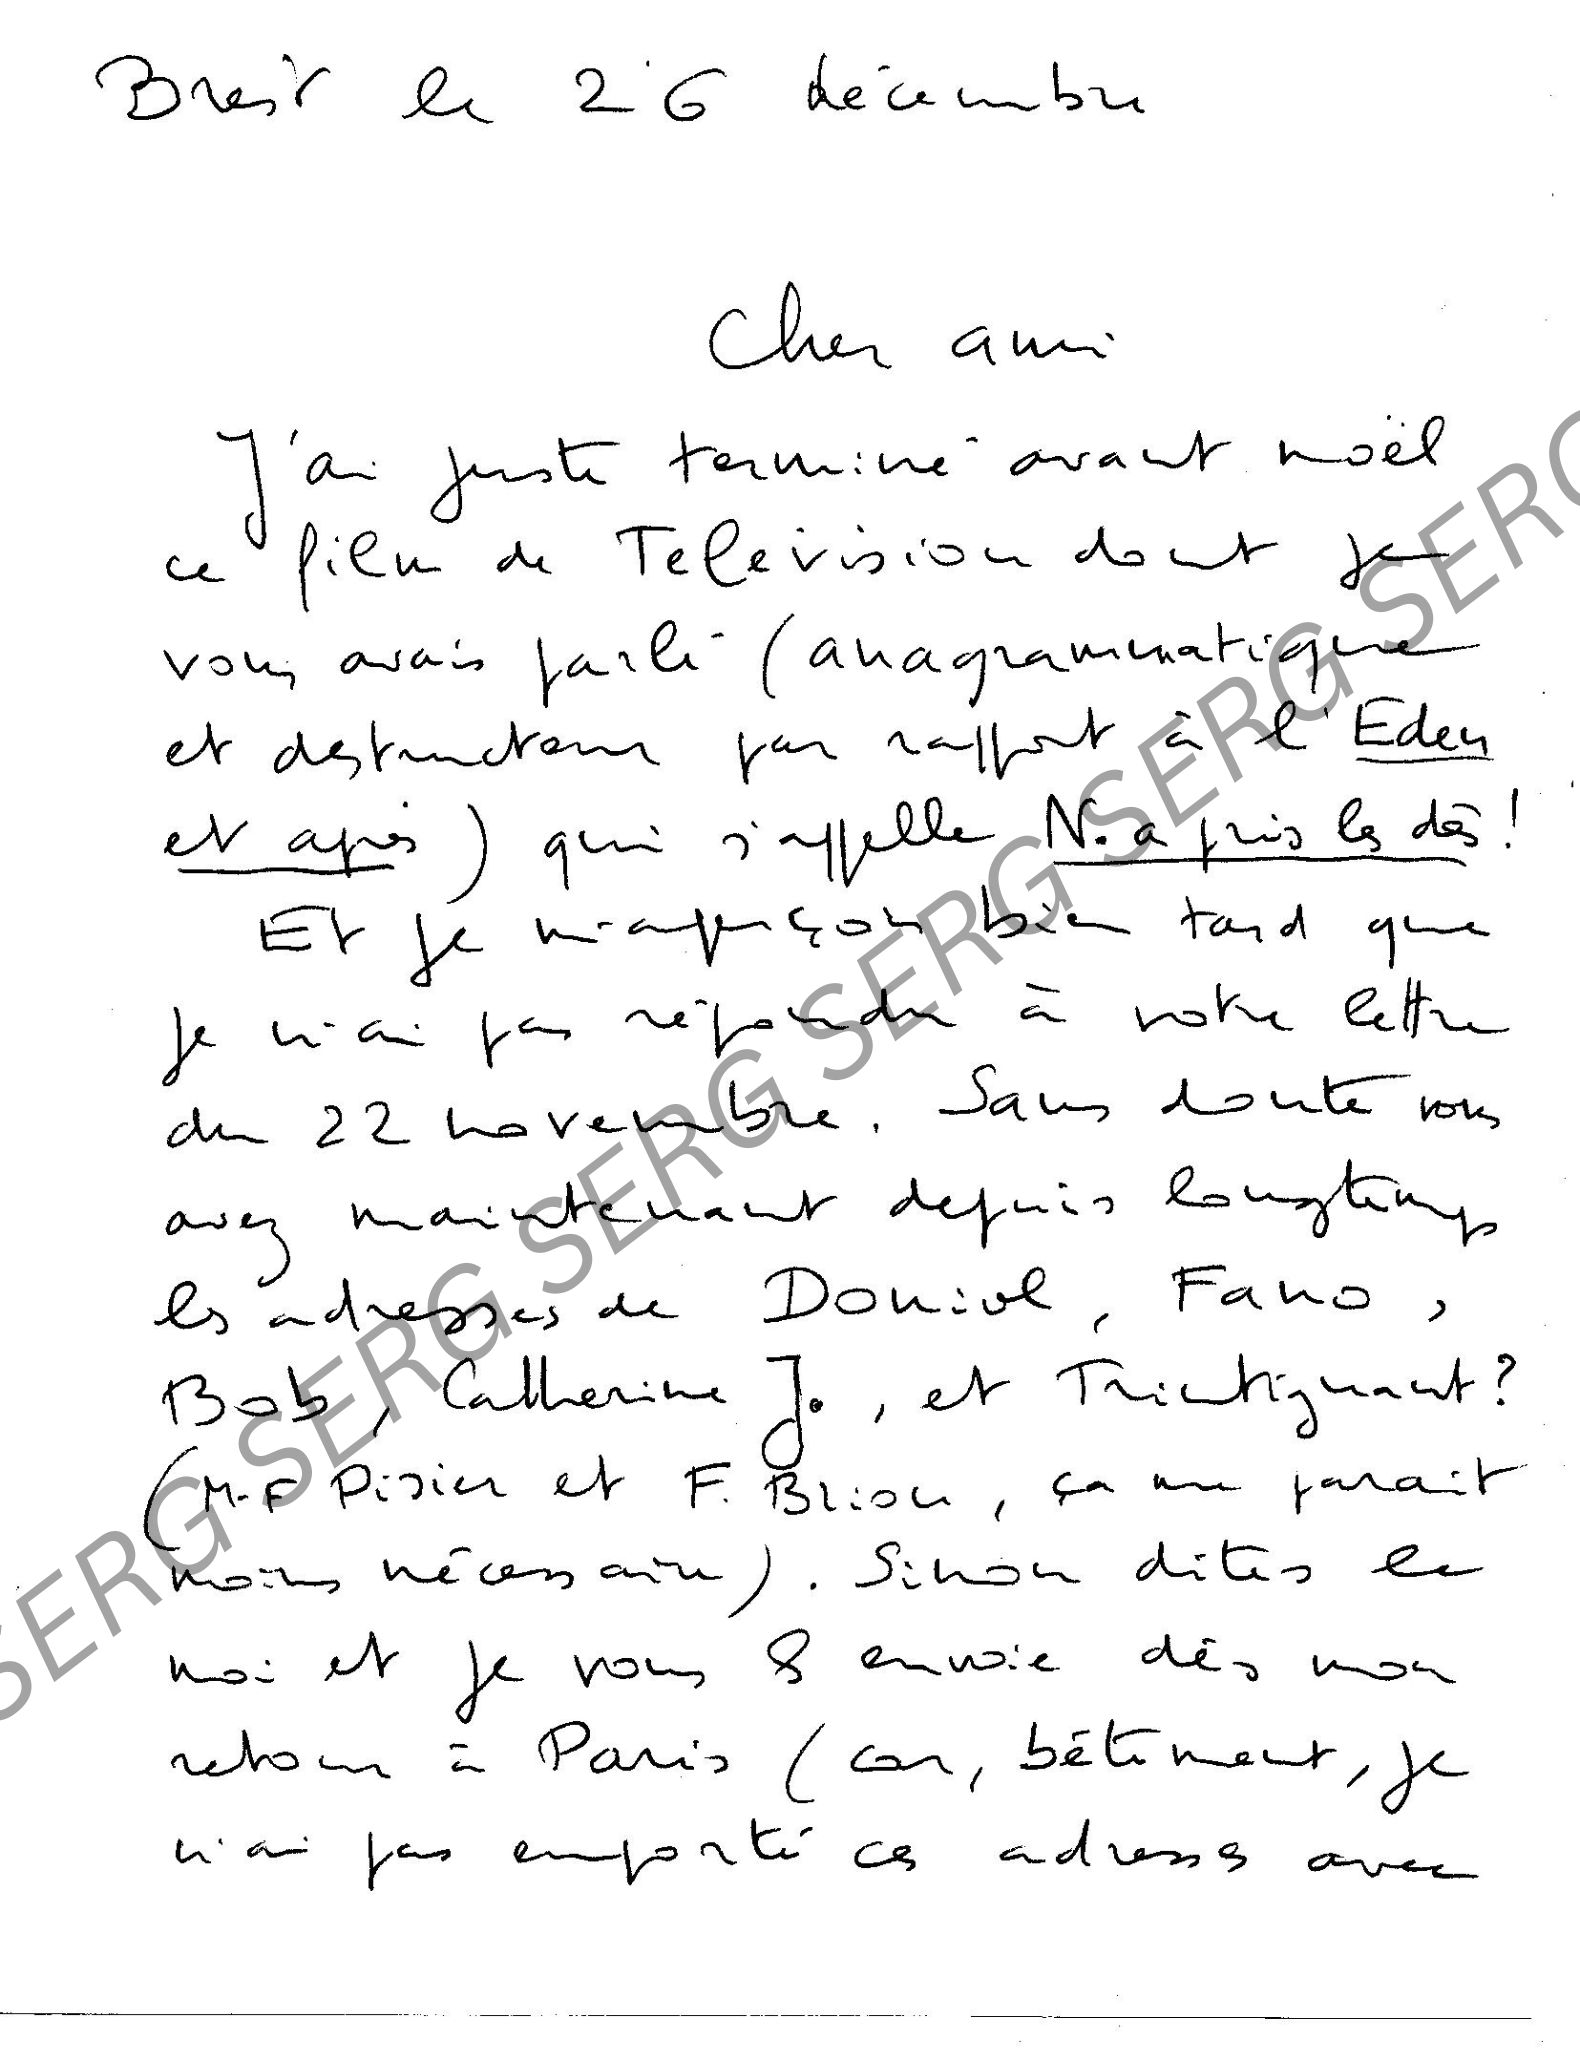 Brest le 26 décembre
Cher ami
J'ai juste terminé avant noël
ce film de Télévision dont je
vous avais parlé (anagrammatique
et destructeur par rapport à l'Eden
et après) qui s'appelle N. a pris les dés!
Et je m'aperçois bien tard que
je n'ai pas répondu à votre lettre
du 22 novembre. Sans doute vous
avez maintenant depuis longtemps
les adresses de Doniol, Fano,
Bob, Catherine J., et Trintignant?
(M-F Pisier et F. Brion, ça me parait
moins nécessaire). Sinon dites le
moi et je vous envoie dès mon
retour à Paris (car, bêtement, je
n'ai pas emporté ces adresses avec
SERG SERG SERG SERG SERG SERG SERG SERG SERG